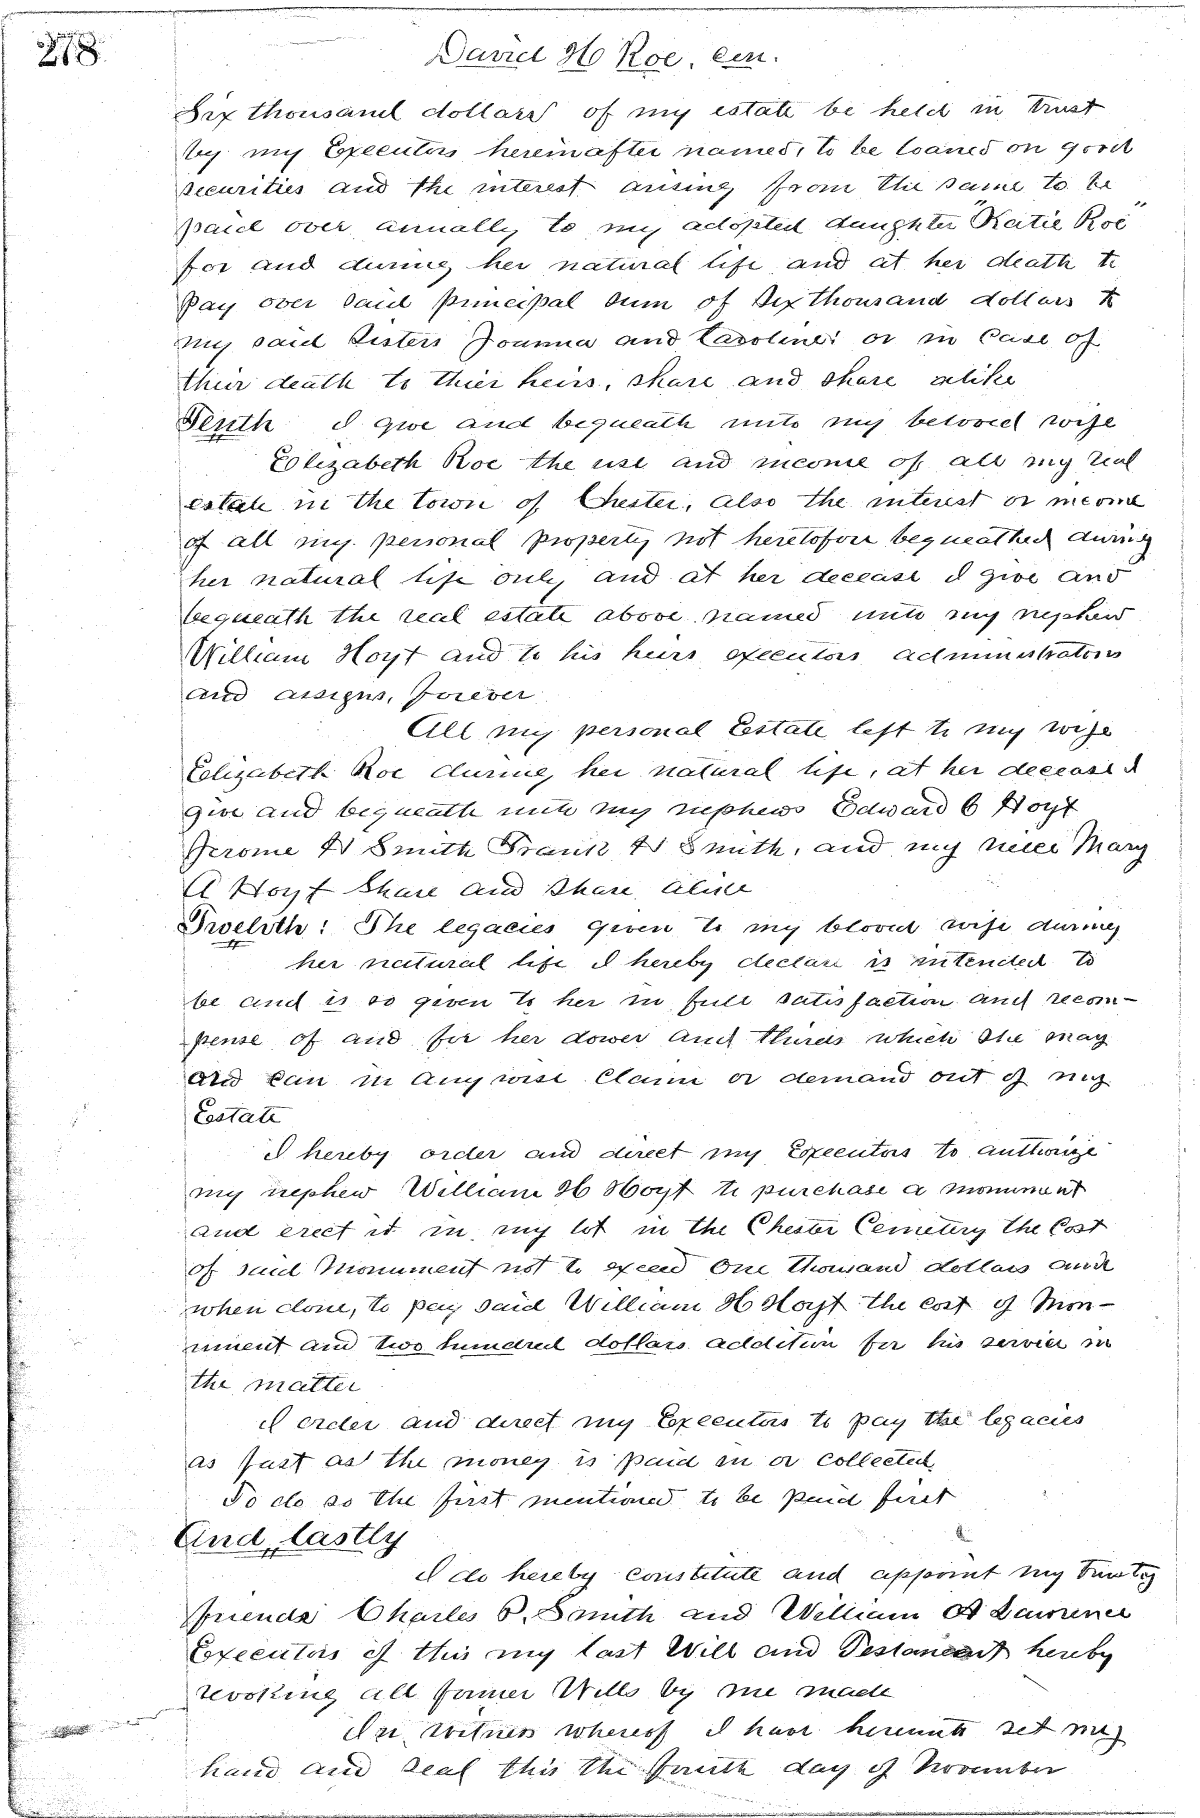 278
David H Roe, Con.
Six thousand dollars of my estate be held in trust
by my Executors hereinafter named, to be loaned on good
securities and the interest arising from the same to be
paid over annually to my adopted daughter "Katie Roe"
for and during her natural life and at her death to
pay over said principal sum of Six thousand dollars to
my said Sisters Joanna and Caroline: or in Case of
their death to thier heirs, share and share alike
Tenth I give and bequeath unto my beloved wife
Elizabeth Roe the use and income of all my real
estate in the town of Chester, also the interest or income
of all my personal property not heretofore bequeathed during
her natural life only and at her decease I give and
bequeath the real estate above named unto my nephew
William Hoyt and to his heirs executors administrators
and assigns, forever
All my personal Estate left to my wife
Elizabeth Roe during her natural life, at her decease I
give and bequeath unto my nephews Edward C Hoyt
Jerome W Smith Frank W Smith, and my niece Mary
A Hoyt Share and Share alike
Twelvth: The legacies given to my bloved wife during
her natural life I hereby declare is intended to
be and is so given to her in full satisfaction and recom-
pense of and for her dower and thirds which she may
and can in any wise Claim or demand out of my
Estate
I hereby order and direct my Executors to authorize
my nephew William H Hoyt to purchase a monument
and erect it in my lot in the Chester Cemetery the Cost
of said Monument not to exceed One thousand dollars and
when done, to pay said William H Hoyt the cost of Mon-
ument and two hundred dollars addition for his service in
the matter
I order and direct my Executors to pay the legacies
as fast as the money is paid in or collected.
To do so the first mentioned to be paid first
And, lastly
I do hereby constitute and appoint my trusty
friends Charles P. Smith and William A Lawrence
Executors of this my last Will and Testament hereby
revoking all former Wills by me made
In witness whereof I have hereunto set my
hand and seal this the fourth day of November